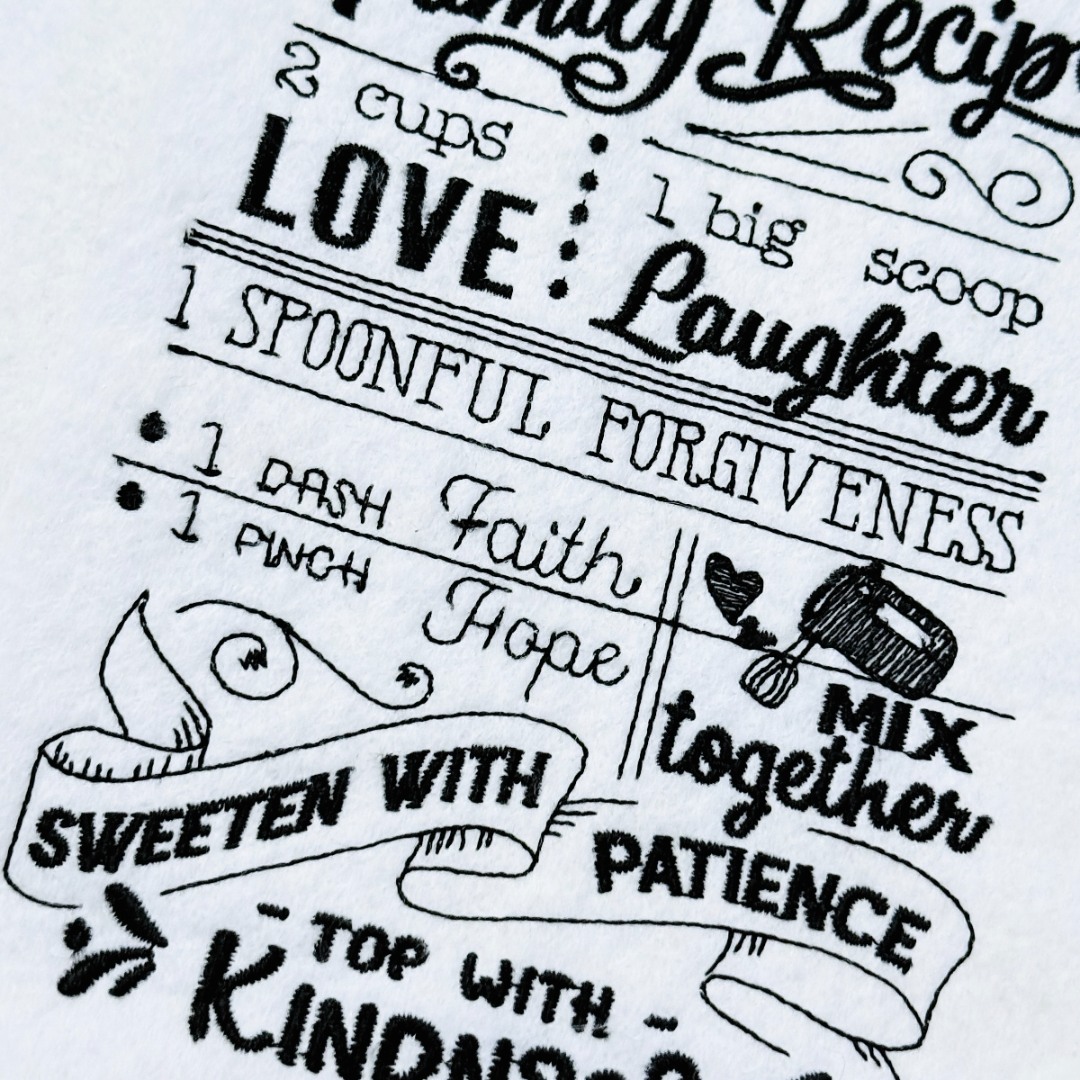 Family Recipe
2 cups
LOVE
1 big scoop
Laughter
1 SPOONFUL FORGIVENESS
1 DASH Faith
1 PINCH Hope
MIX
together
SWEETEN WITH
PATIENCE
- TOP WITH -